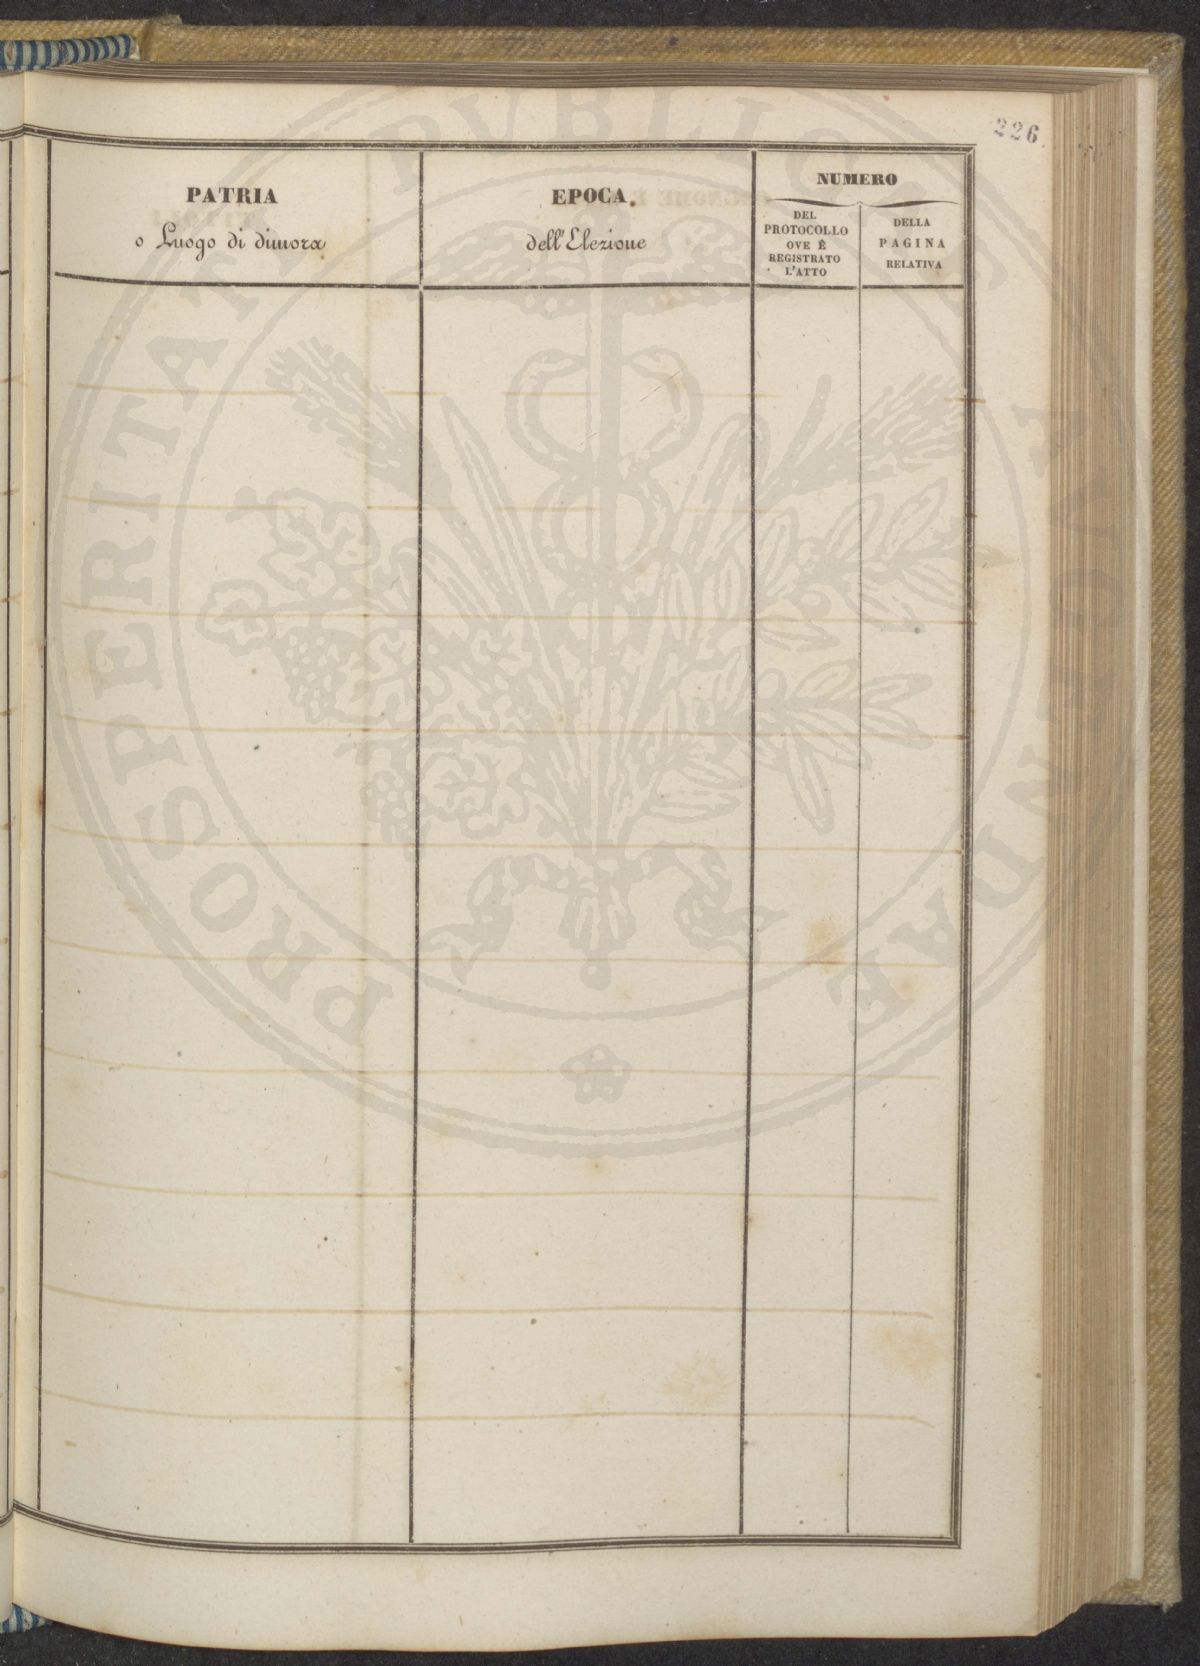 226
PATRIA
o Luogo di dimora
EPOCA
dell'Elezione
NUMERO
DEL
PROTOCOLLO
OVE È
REGISTRATO
L'ATTO
DELLA
PAGINA
RELATIVA
PROSPERITATI PVBLICAE AVGENDAE